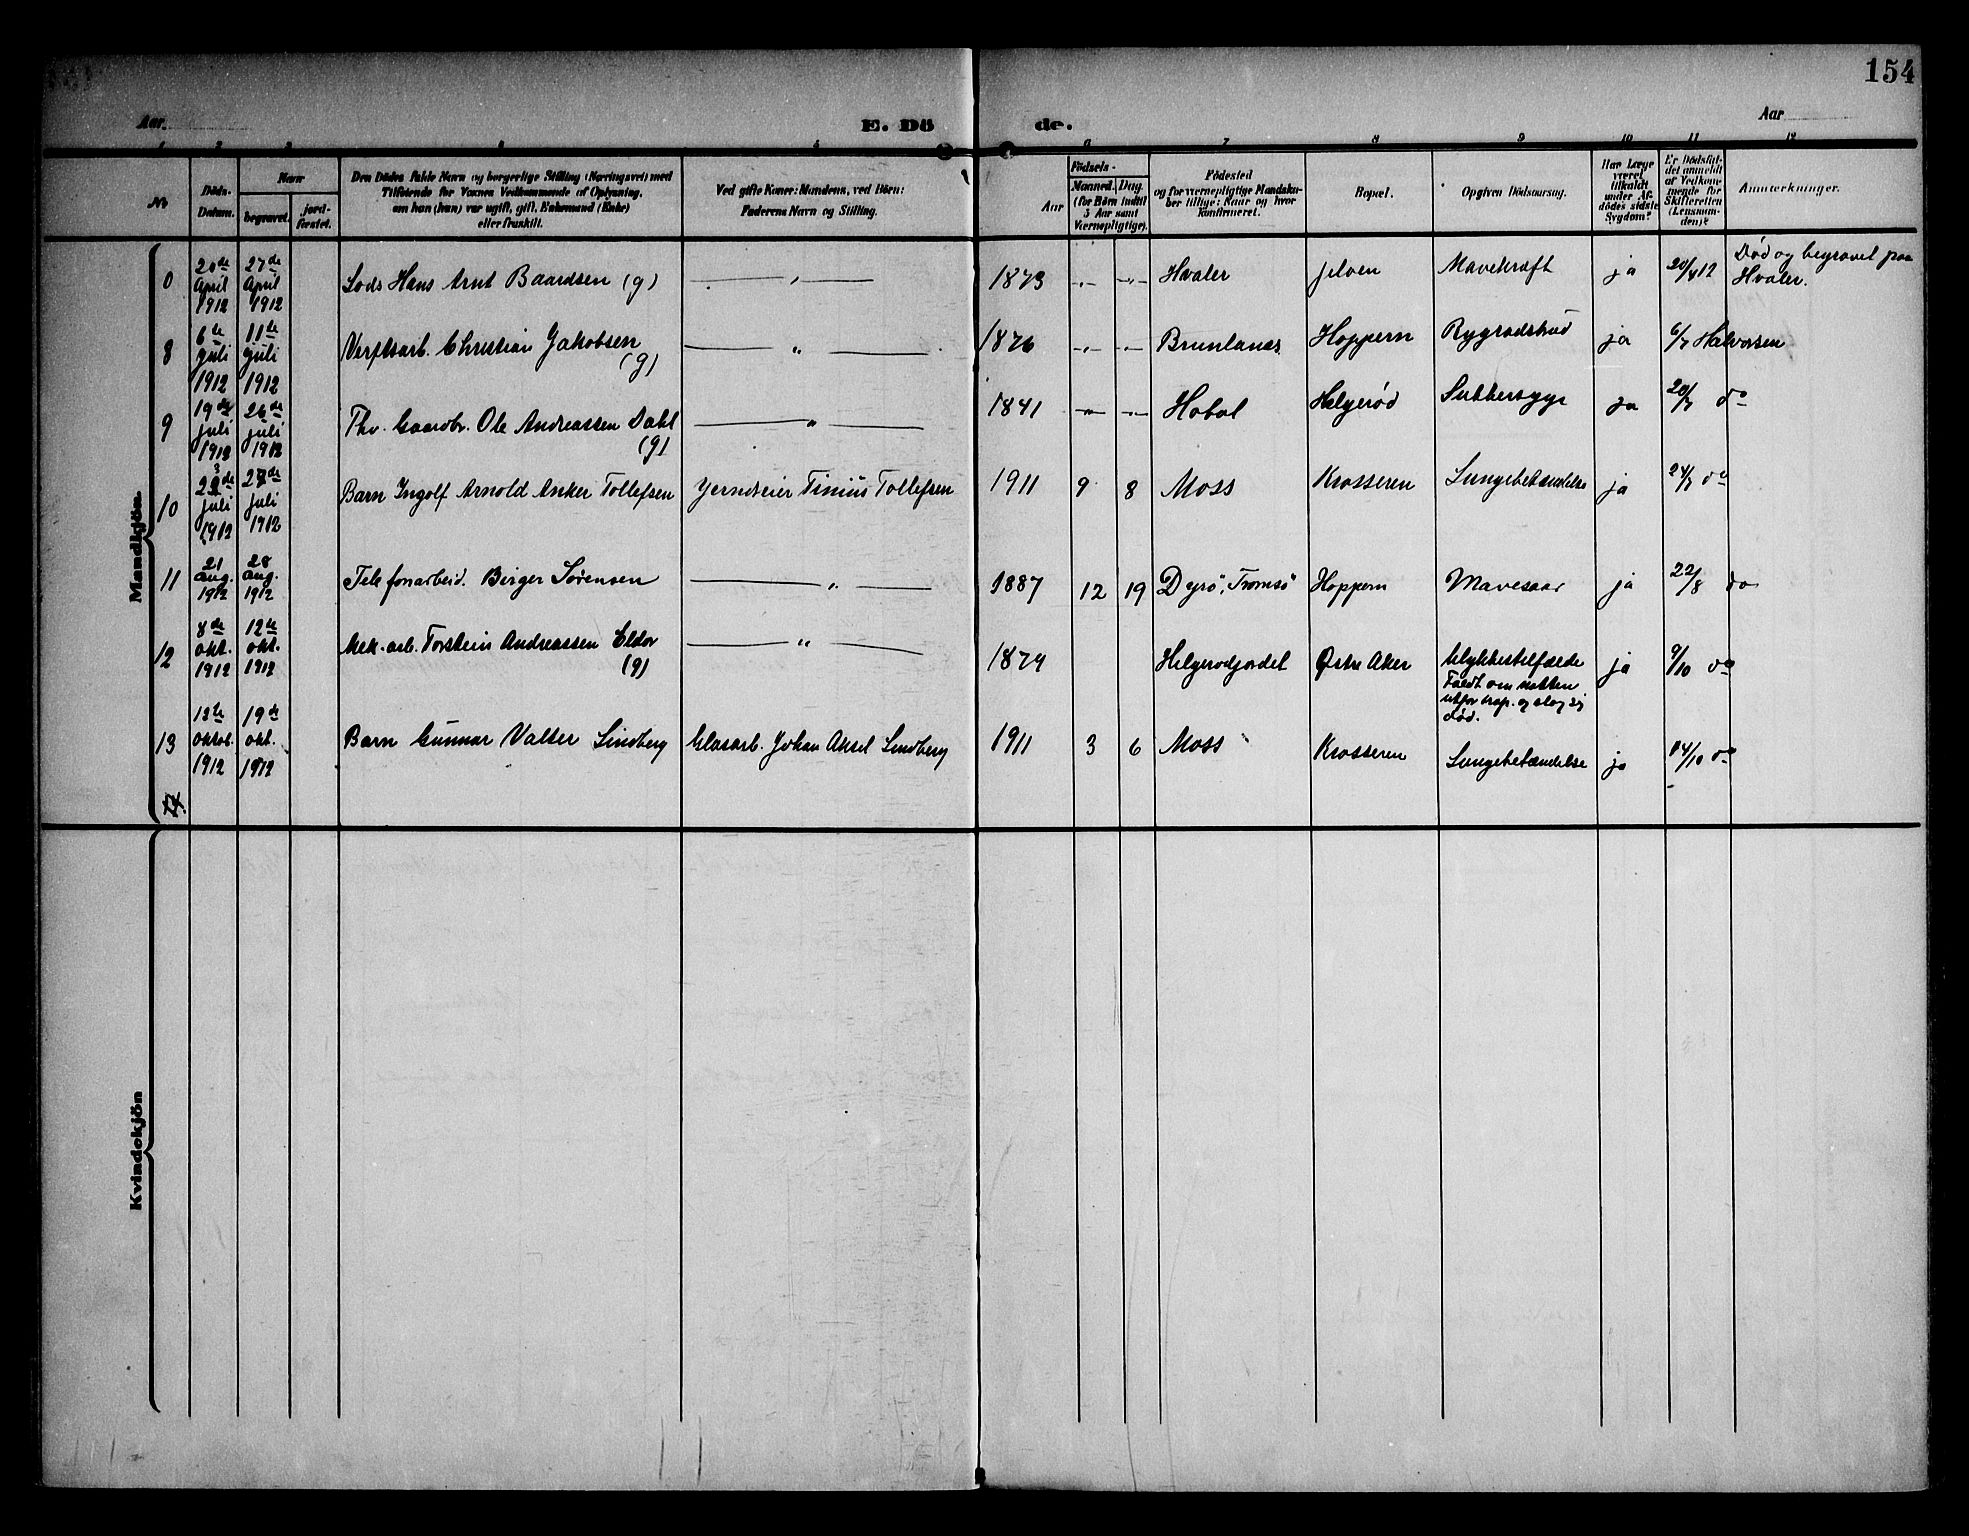 154
Aar
E. Dö
de.
Aar
1 2 3 4 5 6 7 8 9 10 11 12
No
Döds-
Datum.
Naar
begravet.
jord-
fæstet.
Den Dödes fulde Navn og borgerlige Stilling (Næringsvei) med
Tilföiende for Voxnes Vedkommende af Oplysning,
om han (hun) var ugift, gift, Enkemand (Enke)
eller fraskilt.
Ved gifte Koner: Mandens, ved Börn:
Faderens Navn og Stilling.
Aar
Födsels-
Maaned. Dag.
(for Börn indtil
5 Aar samt
Værnepligtige).
Födested
og for værnepligtige Mandska-
ber tillige: Naar og hvor
konfirmeret.
Bopæl.
Opgiven Dödsaarsag.
Har Læge
været
tilkaldt
under Af-
dödes sidste
Sygdom?
Er Dödsfal-
det anmeldt
af Vedkom-
mende for
Skifteretten
(Lensman-
den)?
Anmærkninger.
Mandkjön
0 20de April 1912 27de April 1912 Lods Hans Arnt Baardsen (g) — " — 1873 -"- -"- Hvaler jeløen Mavekræft ja 20/4 12 Død og begravet paa
Hvaler.
8 6te juli 1912 11de juli 1912 Verftsarb. Christian Jakobsen
(g) — " — 1876 -"- -"- Brunlanes Hoppern Rygradsbrud ja 6/7 Halvorsen
9 19de juli 1912 26de juli 1912 Fhv. Gaardbr. Ole Andreassen Dahl
(g) — " — 1841 -"- -"- Hobøl Helgerød Sukkersyge ja 20/7 do
10 juli 1912 27de juli 1912 Barn Ingolf Arnold Anker Tollefsen Tinius Tollefsen 1911 9 8 Moss Krosseren Lungebetændelse ja 24/7 do
11 21 aug. 1912 28 aug. 1912 Telefonarbeid. Birger Sørensen — " — 1887 12 19 Dyrö, Tromsö Hoppern Mavesaar ja 22/8 do
12 8de okt. 1912 12te okt. 1912 Mek. arb. Torstein Andreassen Eldor
(g) — " — 1874 Helgerødjordet Østre Aker Ulykkestilfælde
Faldt om natten
utfor trap. og slog sig
død. ja 9/10 do
13 12te oktob. 1912 19de okt. 1912 Barn Gunnar Valter Lindberg Glasarb. Johan Aksel Lindberg 1911 3 6 Moss Krosseren Lungebetændelse ja 14/10 do
Kvindekjön